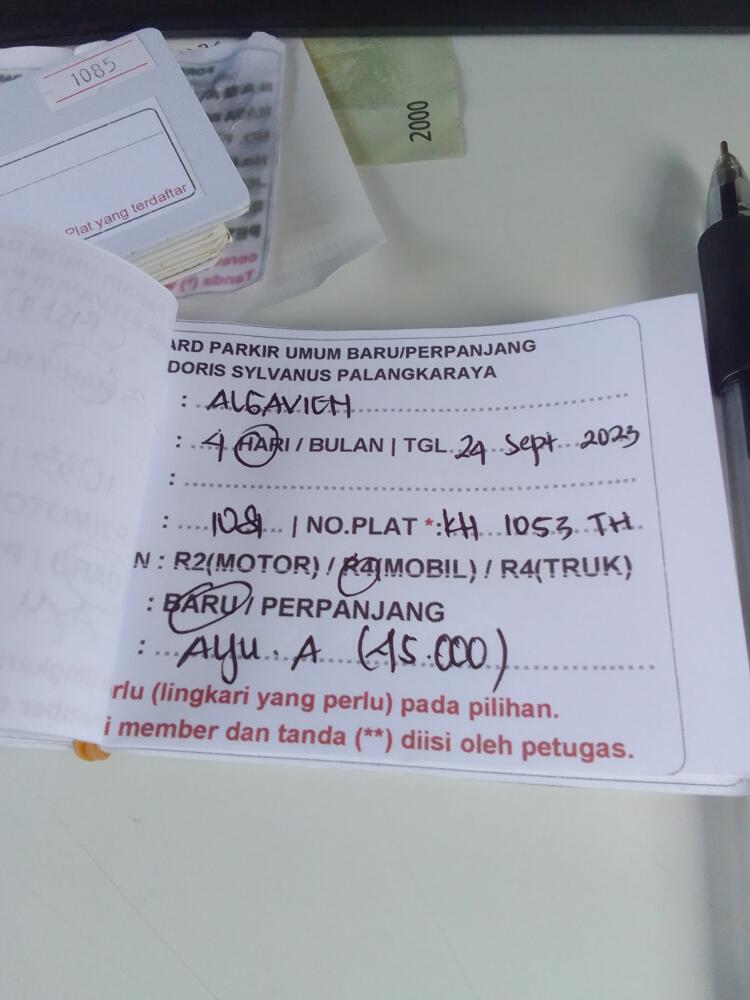 1085
2000
Plat yang terdaftar
ARD PARKIR UMUM BARU/PERPANJANG
DORIS SYLVANUS PALANGKARAYA
: ALGAVIEH
: 4 HARI / BULAN | TGL 24 Sept 2023
:
: | NO.PLAT *: KH 1053 TH
N : R2(MOTOR) / R4(MOBIL) / R4(TRUK)
: BARU / PERPANJANG
: AYU. A (45.000)
rlu (lingkari yang perlu) pada pilihan.
i member dan tanda (**) diisi oleh petugas.